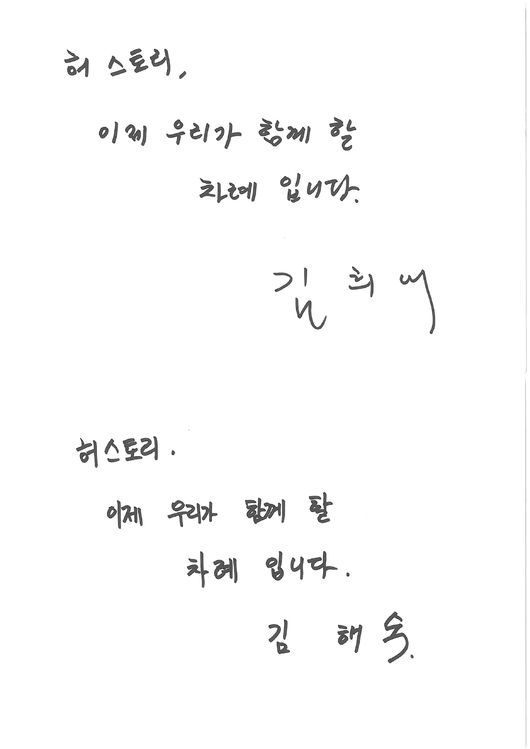 허 스토리,
이제 우리가 함께 할
차례 입니다.
김 희애
허스토리.
이제 우리가 함께 할
차례 입니다.
김 해숙.